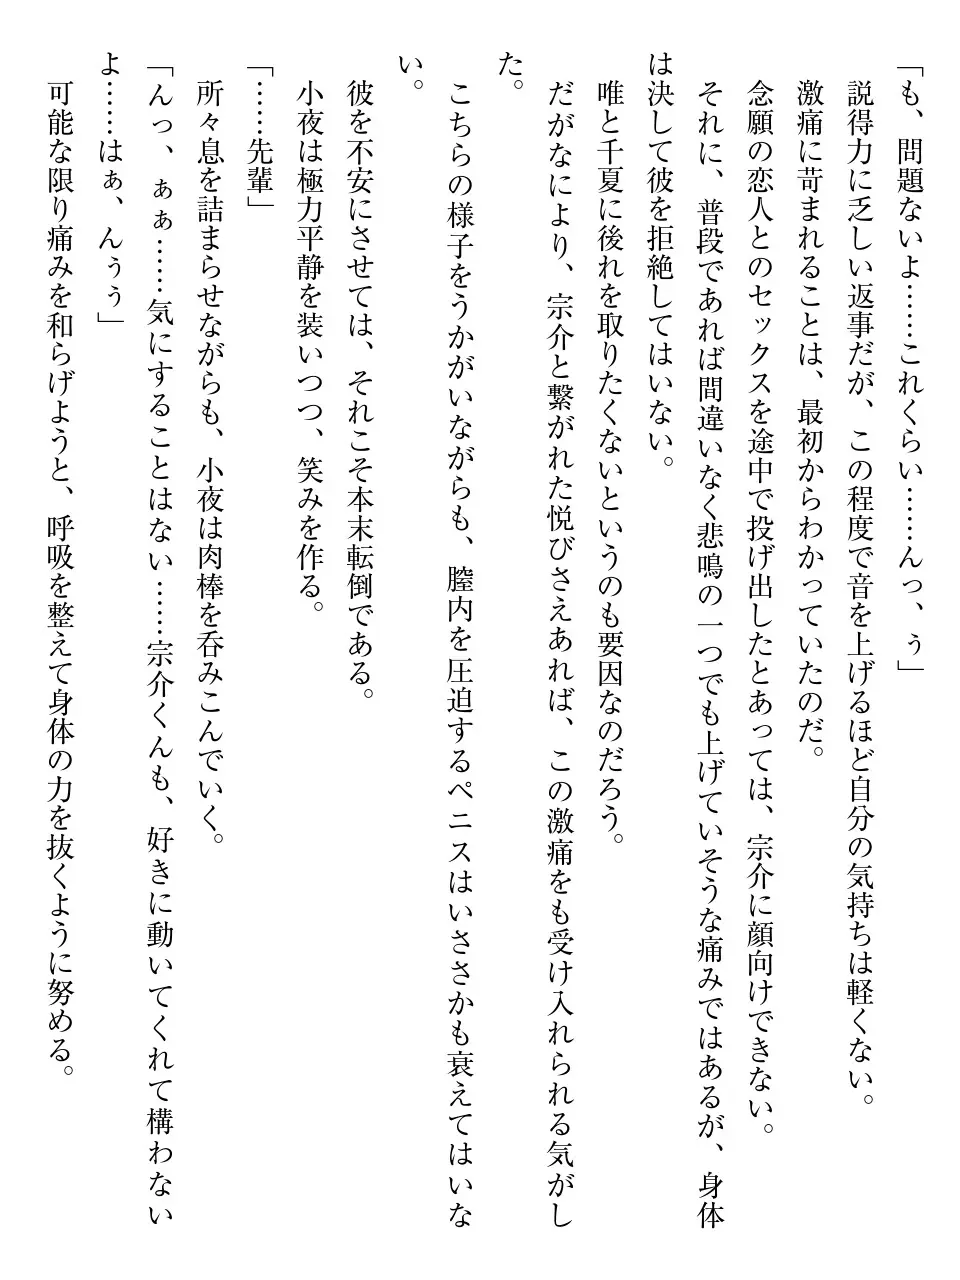 「も、問題ないよ……これくらい……んっ、ぅ」
説得力に乏しい返事だが、この程度で音を上げるほど自分の気持ちは軽くない。
激痛に苛まれることは、最初からわかっていたのだ。
念願の恋人とのセックスを途中で投げ出したとあっては、宗介に顔向けできない。
それに、普段であれば間違いなく悲鳴の一つでも上げていそうな痛みではあるが、身体
は決して彼を拒絶してはいない。
唯と千夏に後れを取りたくないというのも要因なのだろう。
だがなにより、宗介と繋がれた悦びさえあれば、この激痛をも受け入れられる気がし
た。
こちらの様子をうかがいながらも、膣内を圧迫するペニスはいささかも衰えてはいな
い。
彼を不安にさせては、それこそ本末転倒である。
小夜は極力平静を装いつつ、笑みを作る。
「……先輩」
所々息を詰まらせながらも、小夜は肉棒を呑みこんでいく。
「んっ、ぁぁ……気にすることはない……宗介くんも、好きに動いてくれて構わない
よ……はぁ、んぅぅ」
可能な限り痛みを和らげようと、呼吸を整えて身体の力を抜くように努める。